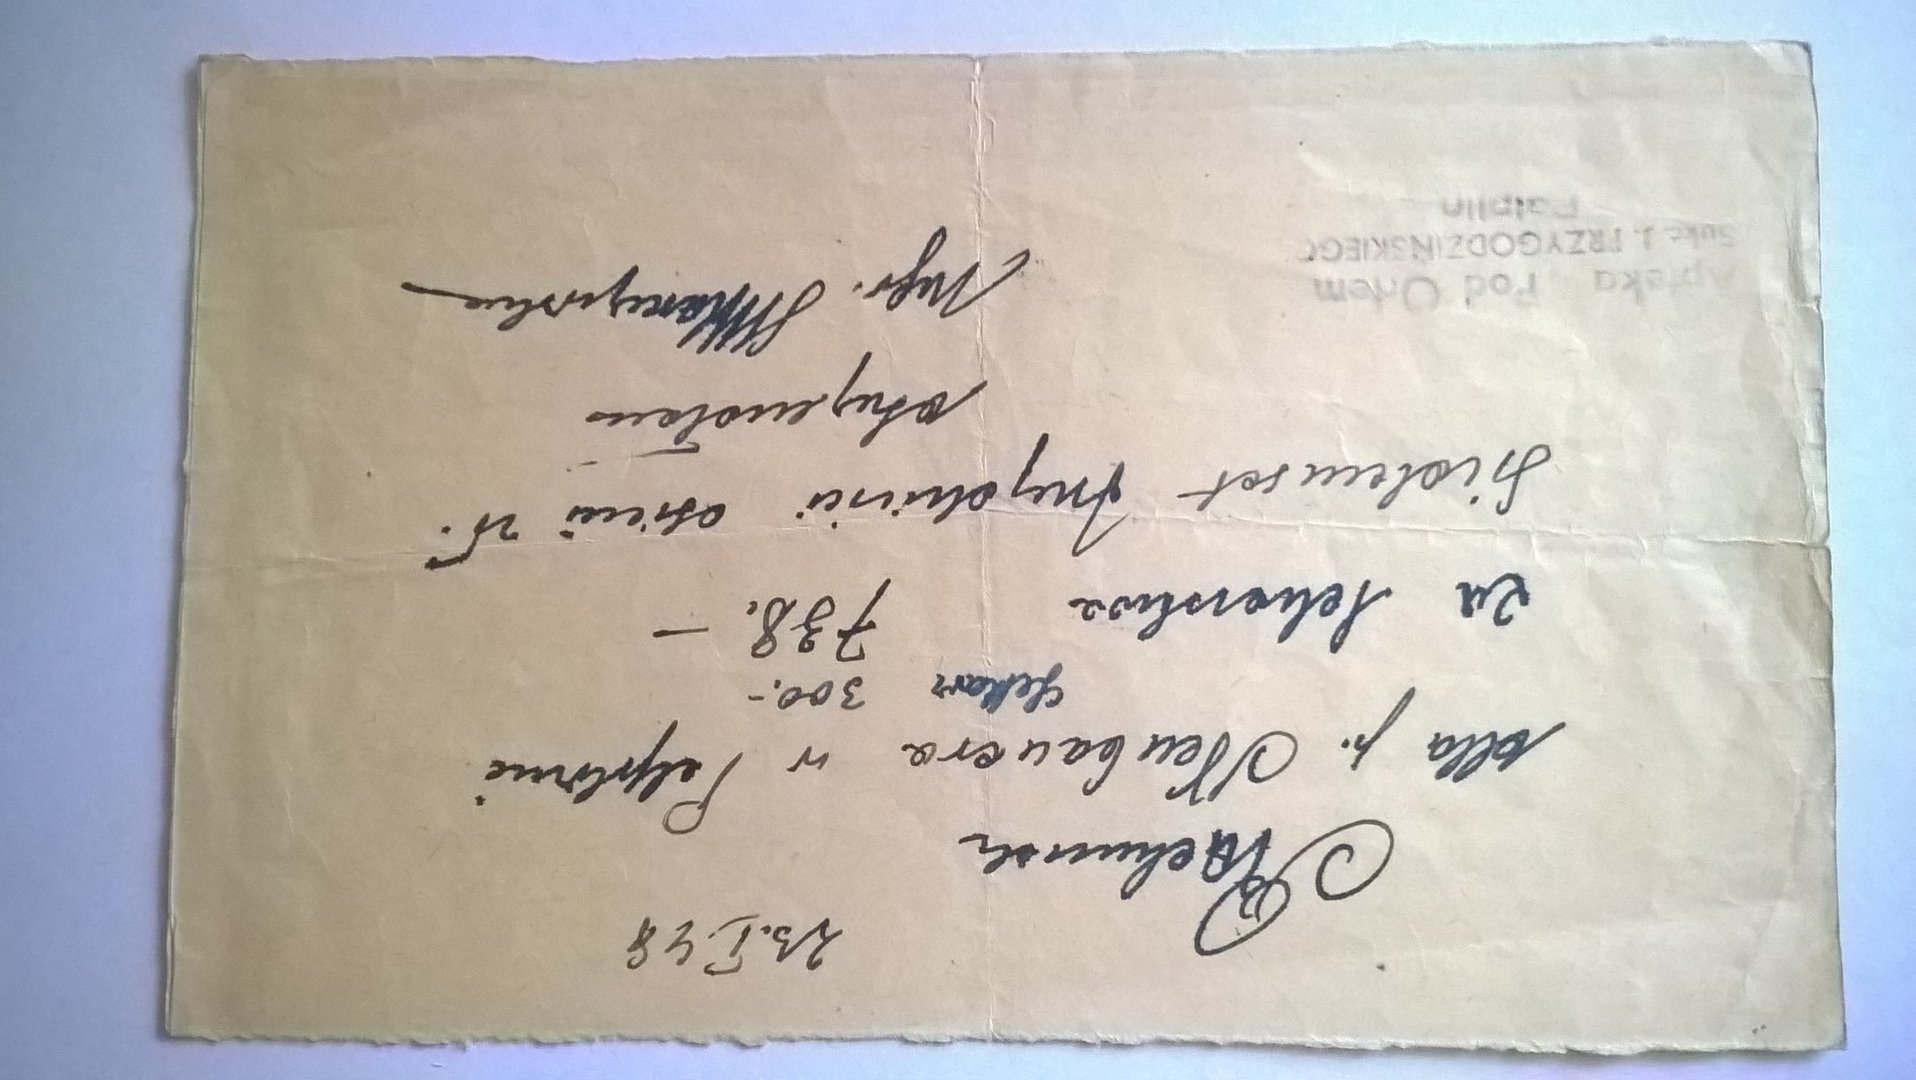 23.I.48
Rachunek
dla p. Neubauera w Pelplinie
Lekarz 300.-
za lekarstwa 738.—
Siedemset trzydzieści osiem zł.
otrzymałam
Mgr.
Apteka Pod Orłem
Sukc. J. PRZYGODZIŃSKIEGO
Pelplin